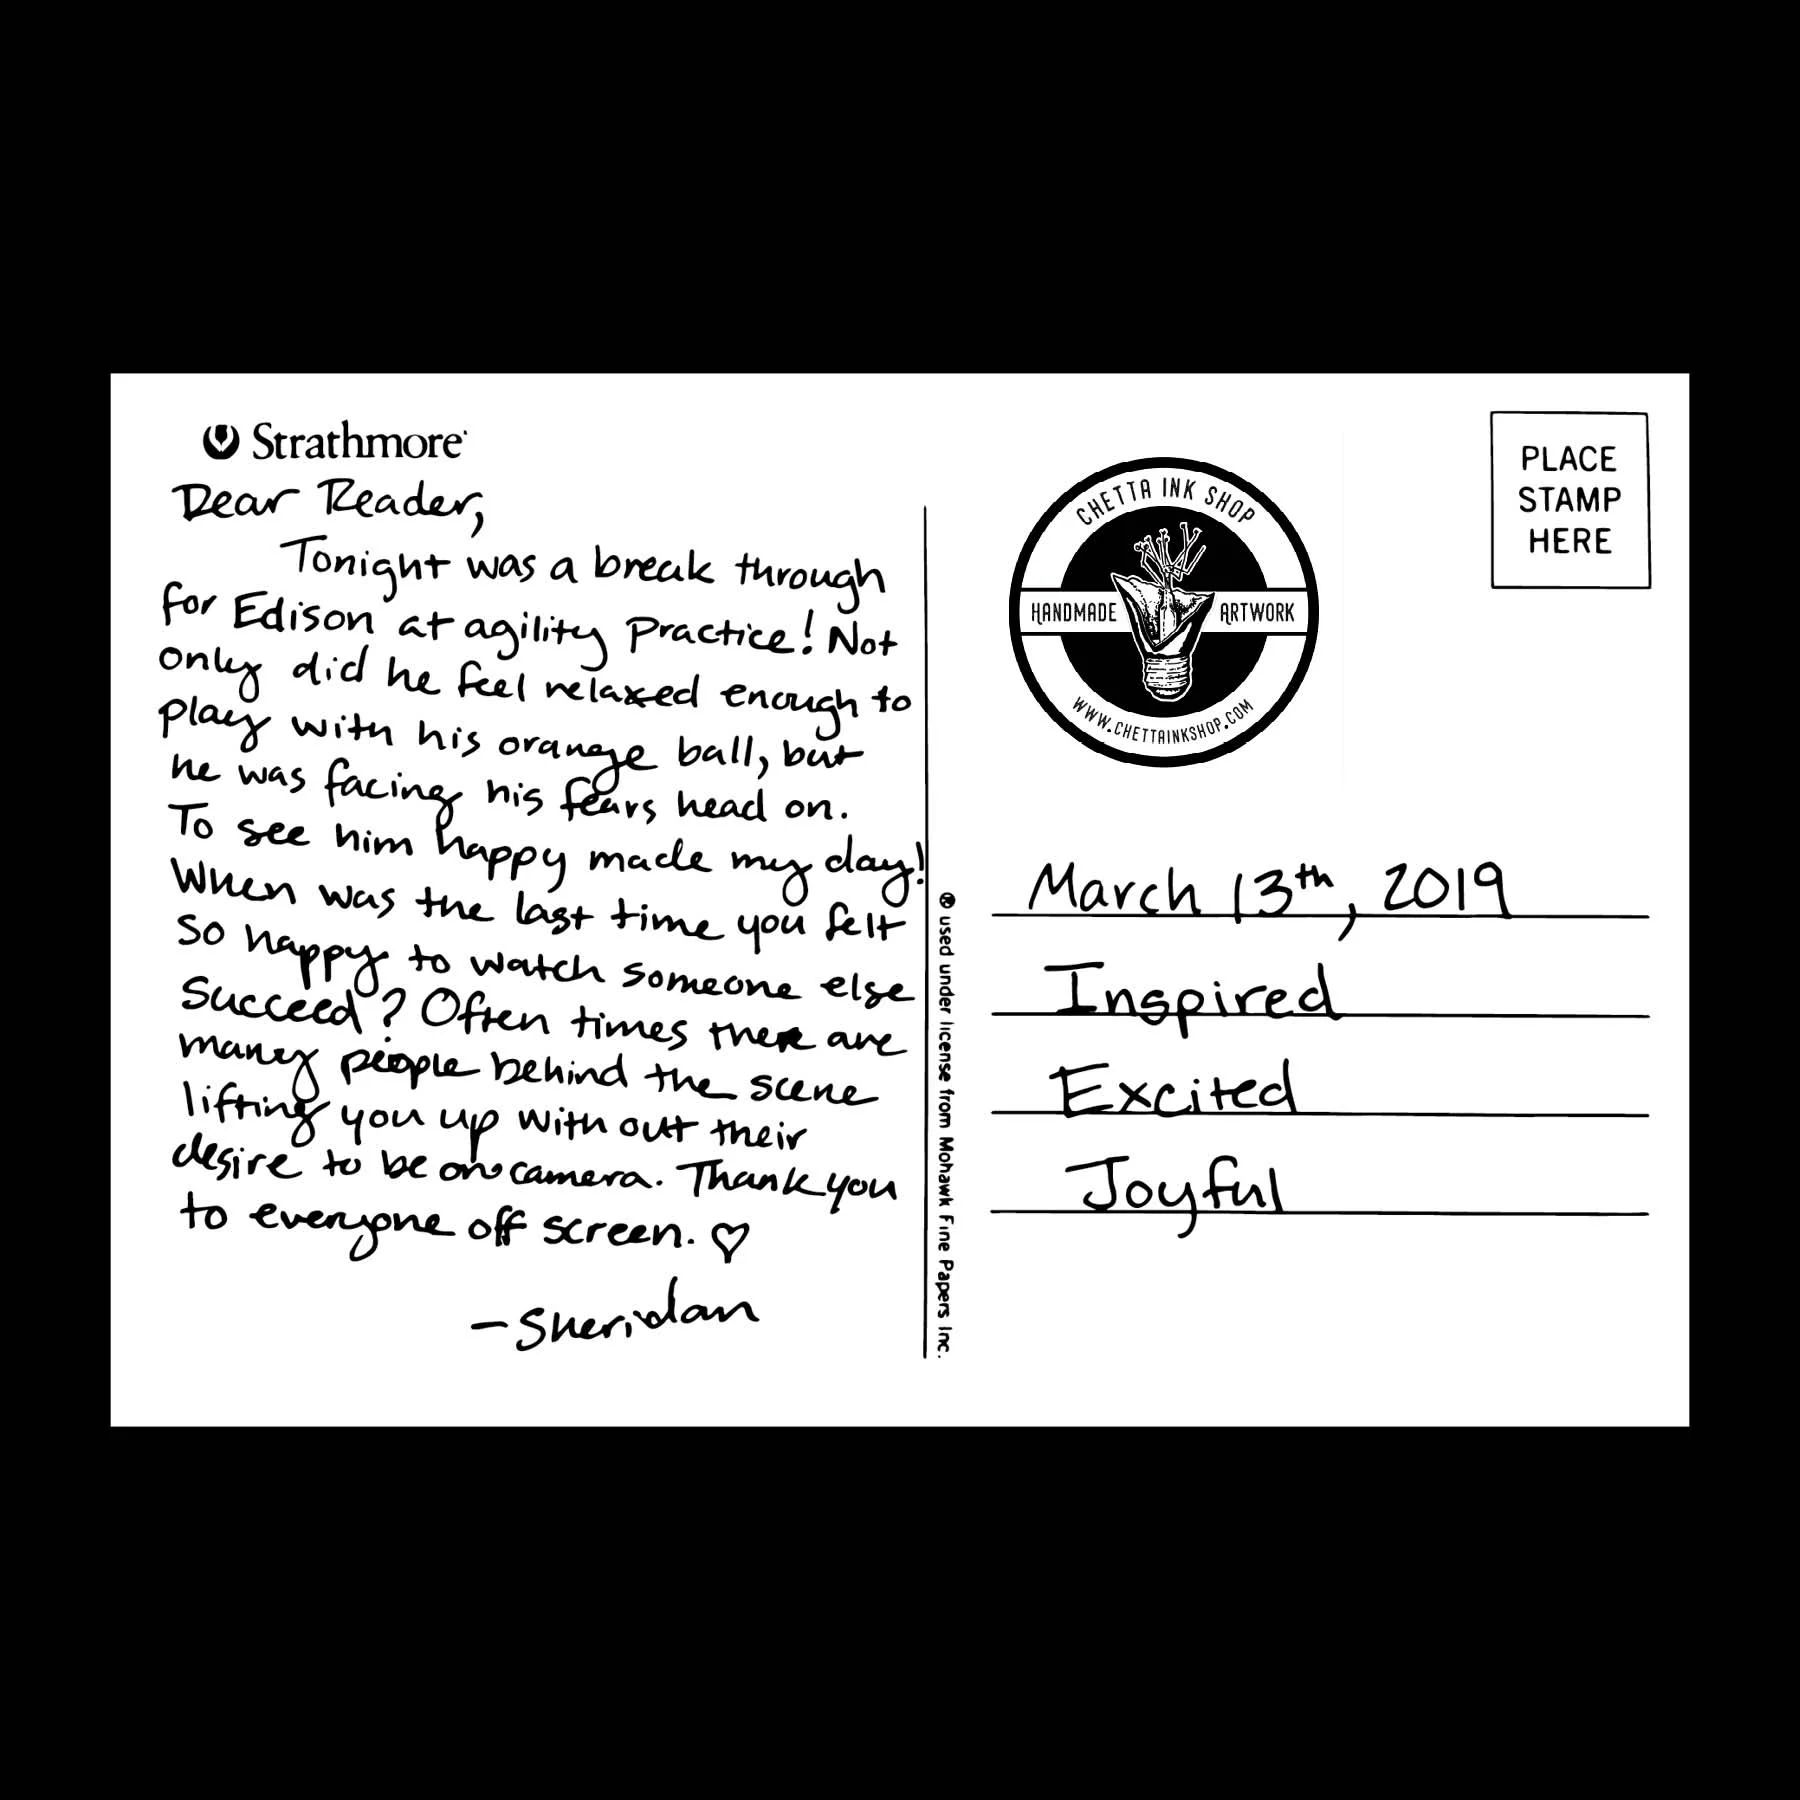 Strathmore
Dear Reader,
Tonight was a break through
for Edison at agility Practice! Not
only did he feel relaxed enough to
play with his orange ball, but
he was facing his fears head on.
To see him happy made my day!
When was the last time you felt
so happy to watch someone else
succeed? Often times there are
many people behind the scene
lifting you up with out their
desire to be on camera. Thank you
to everyone off screen. ♡
- Sheridan
® used under license from Mohawk Fine Papers Inc.
CHETTA INK SHOP
HANDMADE ARTWORK
WWW.CHETTAINKSHOP.COM
PLACE
STAMP
HERE
March 13th, 2019
Inspired
Excited
Joyful